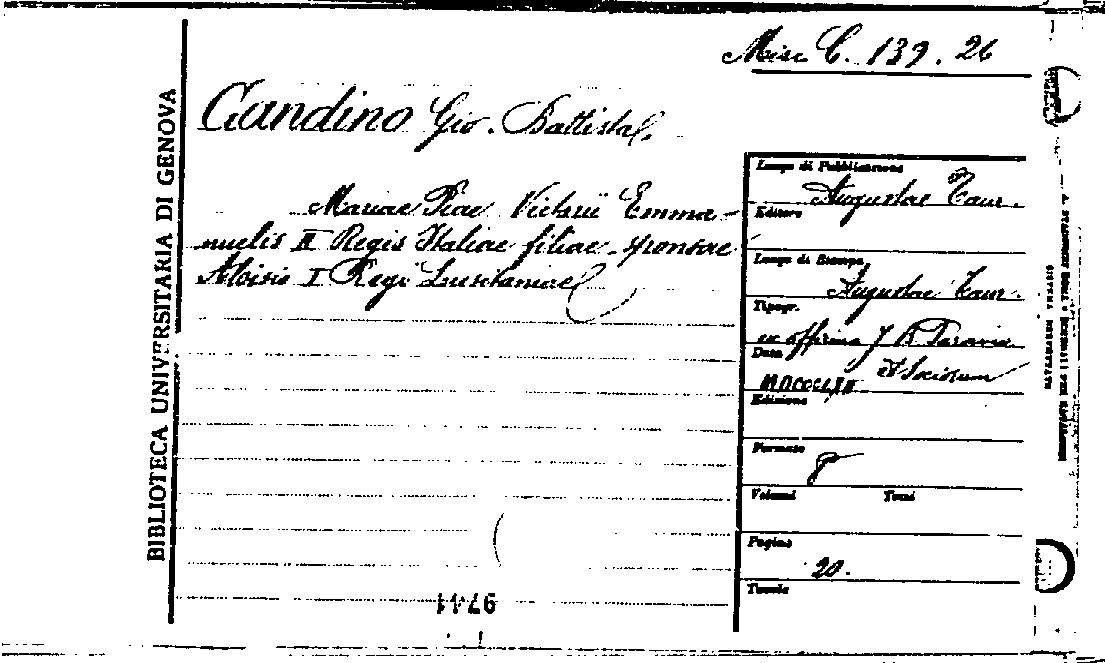 Misc C. 139. 26
BIBLIOTECA UNIVERSITARIA DI GENOVA
Gandino Gio. Battista
Mariae Piae Victorii Emma-
nuelis II Regis Italiae filiae sponsae
Aloisio I Regi Lusitaniae
Luogo di Pubblicazione
Augustae Taur.
Editore
Luogo di Stampa
Augustae Taur.
Tipogr.
ex officina J B Paravia
et Sociorum
Data
MDCCCLXII
Edizione
Formato
8°
Volumi Tomi
Pagine
20.
Tavole
9744